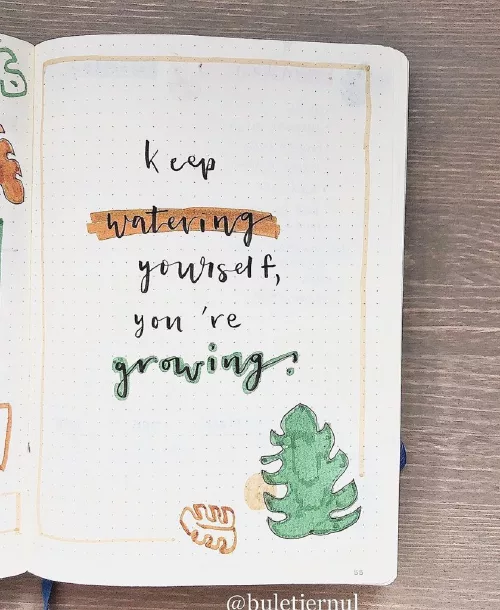 keep
watering
yourself,
you 're
growing!
53
@buletjernul